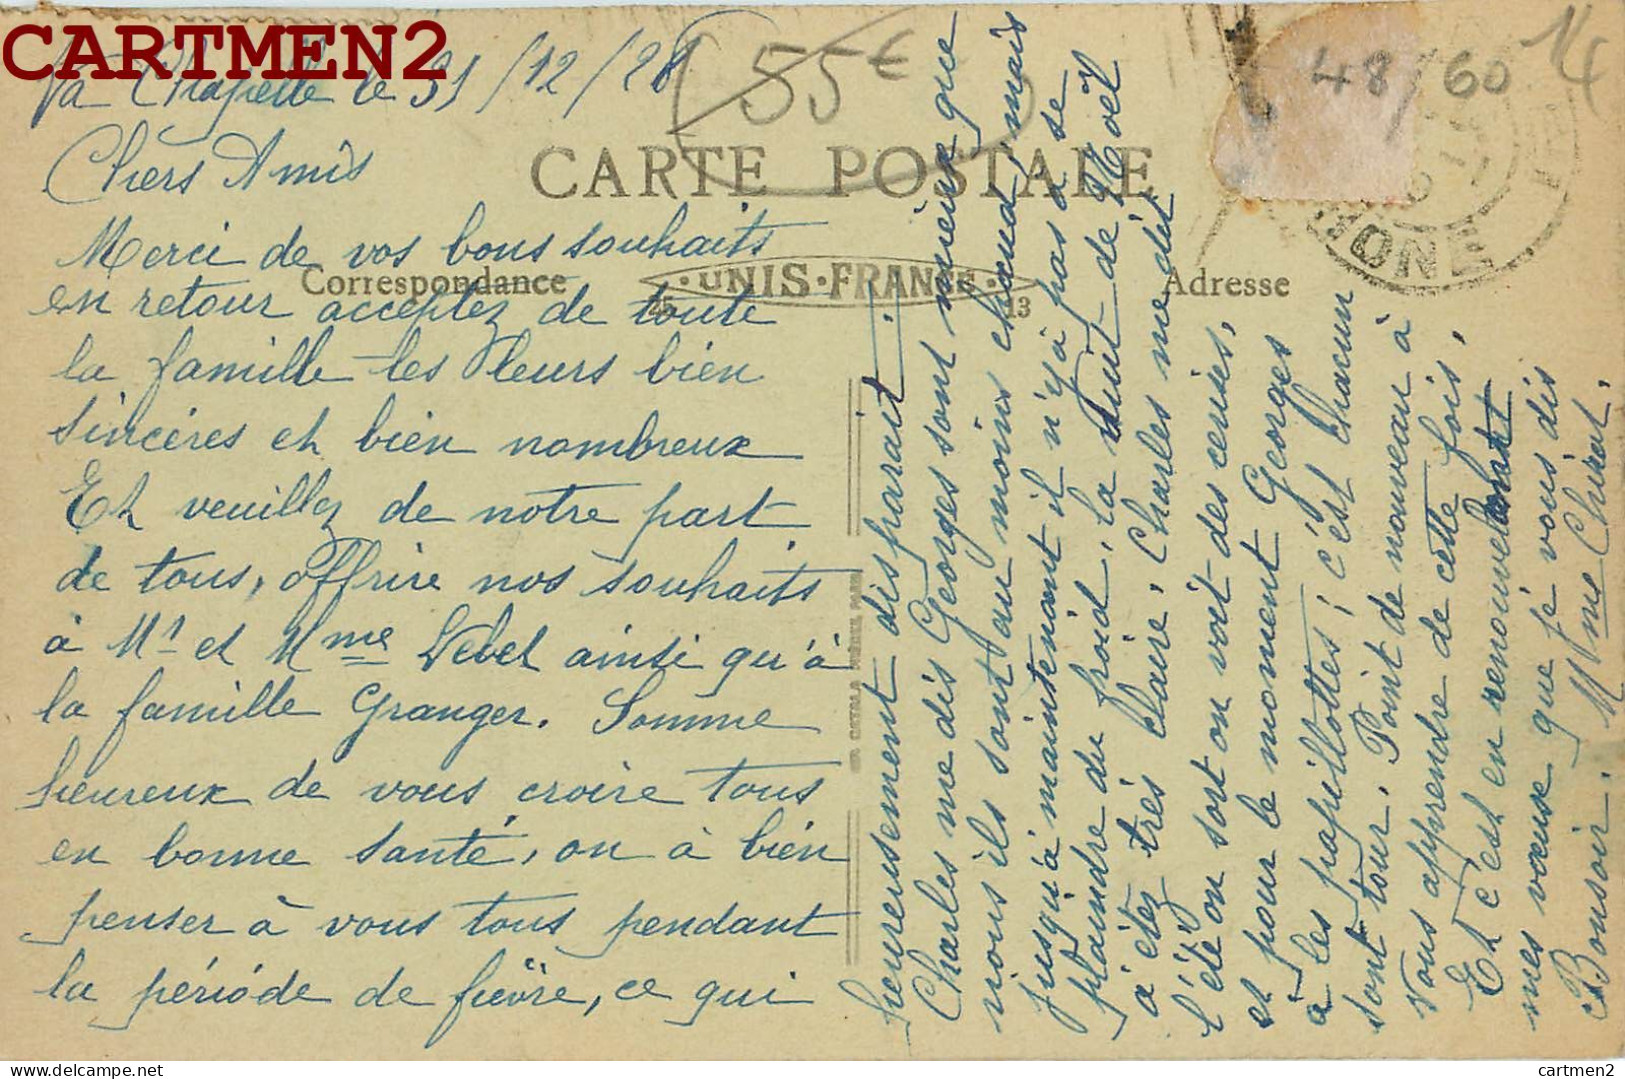 CARTMEN2
La Chapelle le 31/12/28
55€
48/60
14
CARTE POSTALE
Correspondance
UNIS-FRANCE
25
13
Adresse
Chers Amis
Merci de vos bons souhaits
en retour acceptez de toute
la famille les leurs bien
sincères et bien nombreux
Et veuillez de notre part
de tous, offrire nos souhaits
à Mr et Mme Debet ainsi qu'à
la famille Granger. Somme
heureux de vous croire tous
en bonne santé, on à bien
penser à vous tous pendant
la période de fièvre, ce qui
heureusement disparait.
Charles me dis Georges sont mieux que
nous ils sont au moins chaud, mais
jusqu'à maintenant il n'y à pas à se
plaindre du froid, la nuit de Noël
à étez très claire, Charles me dit
l'été on sort on voit des cerises,
et pour le moment Georges
à les papillottes; c'est chacun
sont tour. Point de nouveau à
vous apprendre de cette fois,
Et c'est en renouvelant
mes vœux que je vous dis
Bonsoir. Mme Chirat.
RHONE